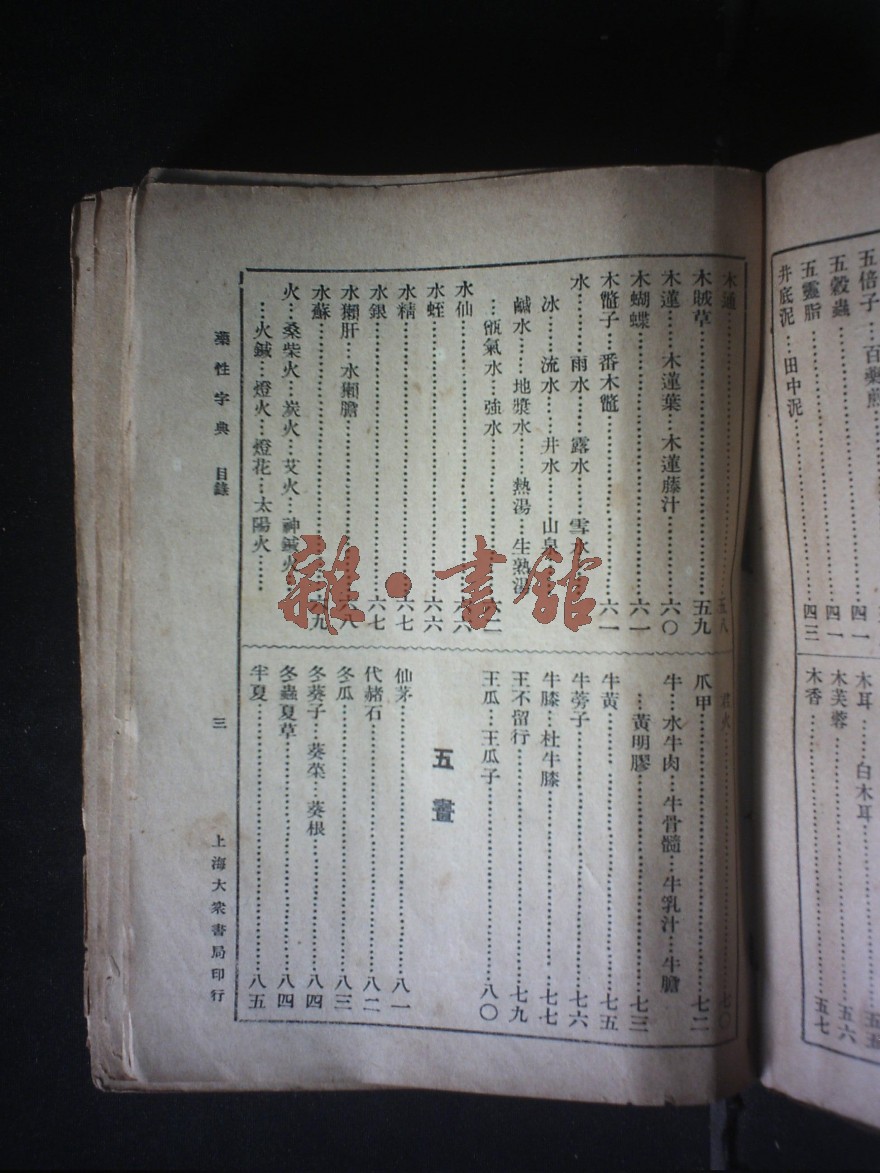 五倍子
五穀蟲……四一
五靈脂……四一
井底泥……田中泥……四三
木耳……白木耳……五五
木芙蓉……五六
木香……五七
木通……五八
木賊草……五九
木蓮……木蓮葉……木蓮藤汁……六〇
木蝴蝶……六一
木鼈子……番木鼈……六一
水……雨水……露水……雪水
冰……流水……井水……山泉
鹹水……地漿水……熱湯……生熟湯
……甑氣水……強水……六二
水仙……六六
水蛭……六六
水精……六七
水銀……六七
水獺肝……水獺膽……六八
水蘇……六九
火……桑柴火……炭火……艾火……神鍼火
……火鍼……燈火……燈花……太陽火……
……七〇
爪甲……七二
牛……水牛肉……牛骨髓……牛乳汁……牛膽
……黃明膠……七三
牛黃……七五
牛蒡子……七六
牛膝……杜牛膝……七七
王不留行……七九
王瓜……王瓜子……八〇
五畫
仙茅……八一
代赭石……八二
冬瓜……八三
冬葵子……葵菜……葵根……八四
冬蟲夏草……八四
半夏……八五
藥性字典 目錄
三
上海大衆書局印行
雜·書館